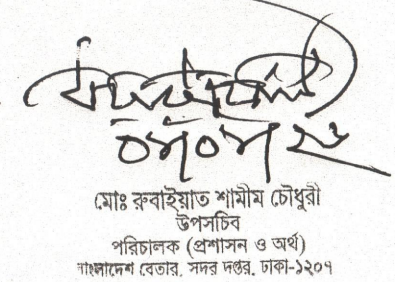 মোঃ রুবাইয়াত শামীম চৌধুরী
উপসচিব
পরিচালক (প্রশাসন ও অর্থ)
বাংলাদেশ বেতার, সদর দপ্তর, ঢাকা-১২০৭